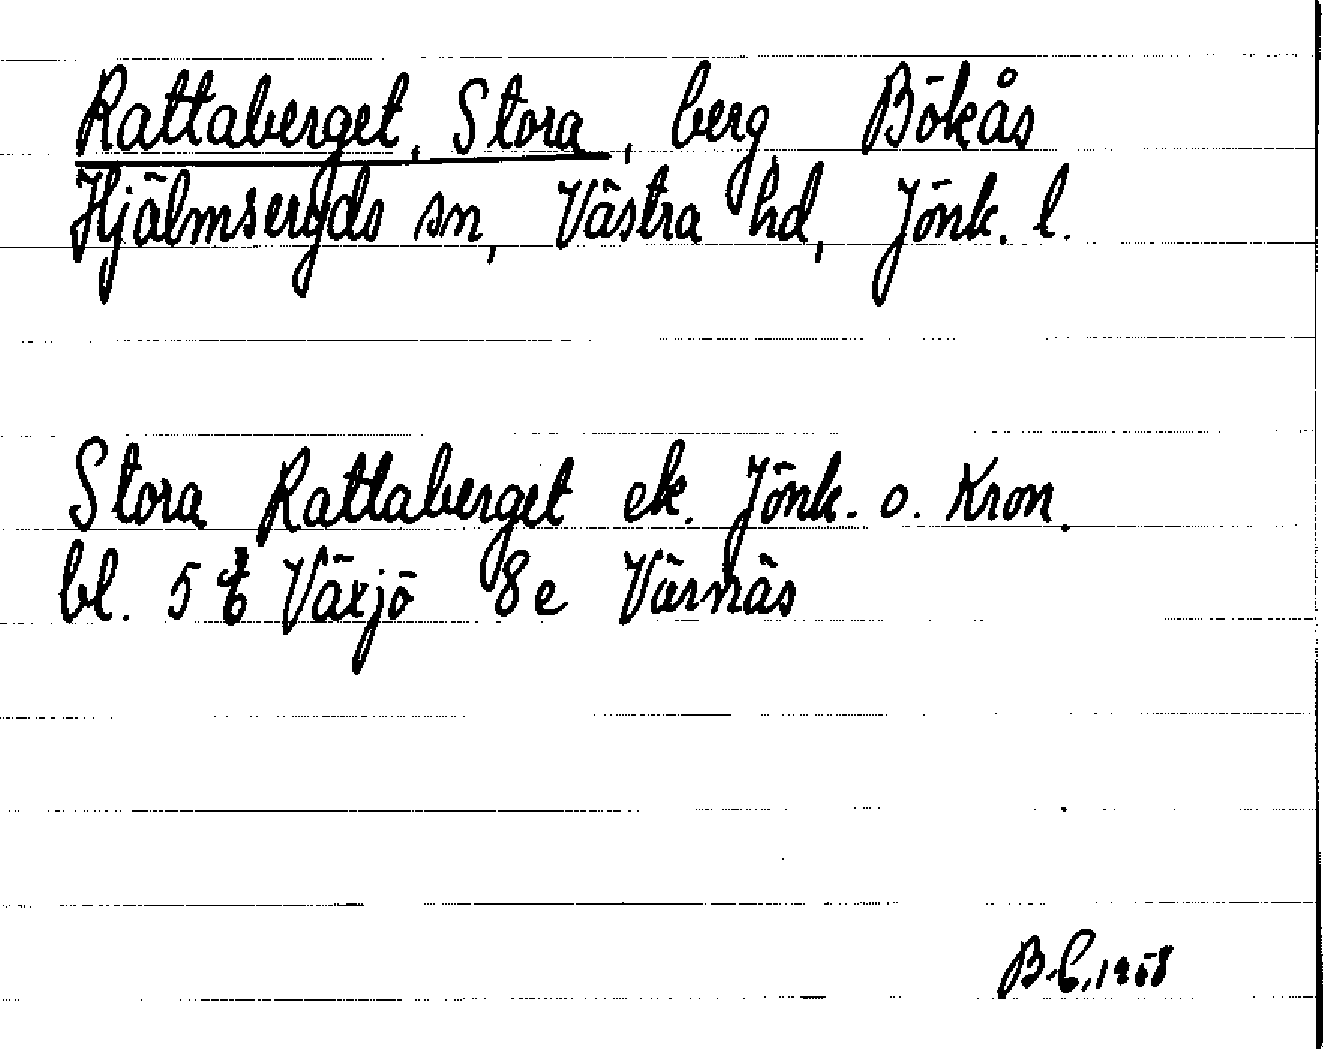 Rattaberget, Stora, berg Bökås
Hjälmseryds sn, Västra hd, Jönk. l.
Stora Rattaberget ek. Jönk. o. Kron.
bl. 5 Växjö 8e Värnäs
B.C. 1958